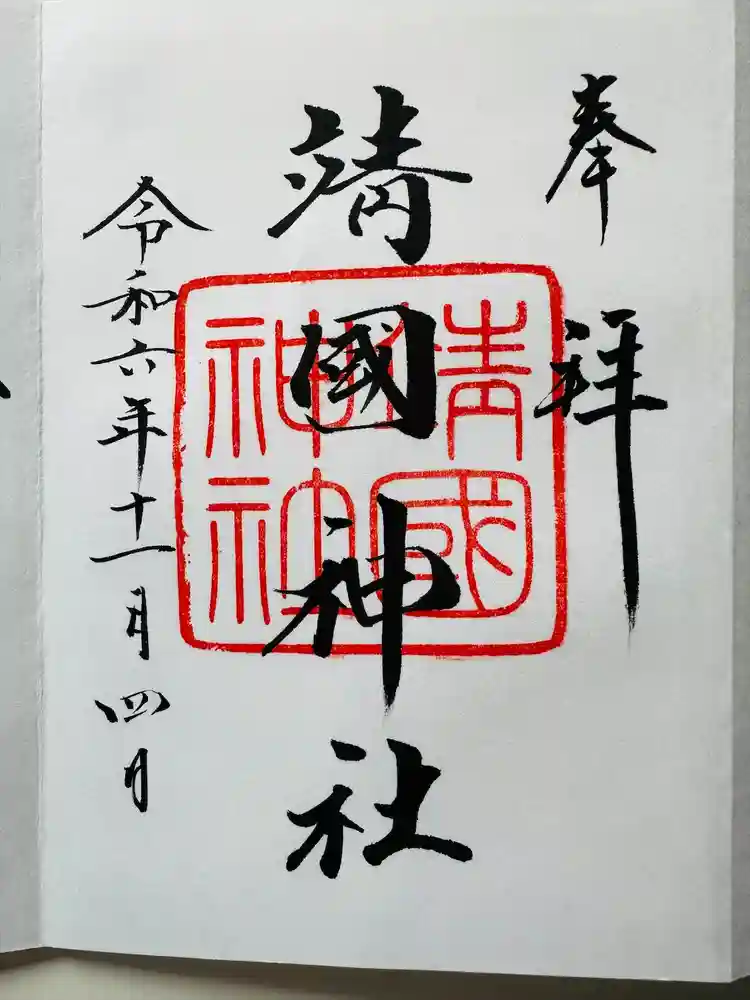 奉拝
靖國神社
靖國
神社
令和六年十一月四日